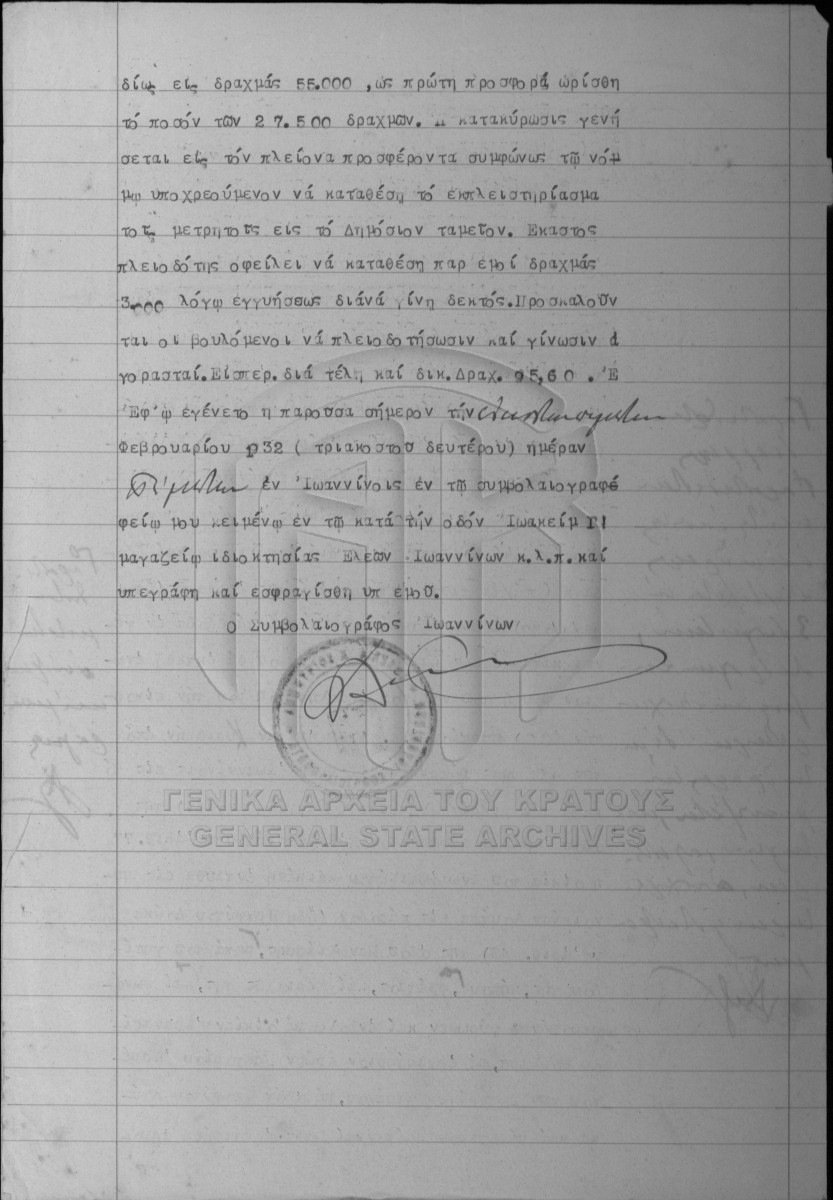 δίως εις δραχμάς 55.000 ,ως πρώτη προσφορά ωρίσθη
τό ποσόν των 27.500 δραχμων. Η κατακύρωσις γενή
σεται είς τόν πλείονα προσφέροντα συμφώνως τῷ νόμ
μῳ υποχρεούμενον νά καταθέση τό εκπλειστηρίασμα
τοῖς μετρητοῖς είς τό Δημόσιον ταμεῖον. Εκαστος
πλειοδότης οφείλει νά καταθέση παρ εμοί δραχμάς
3.000 λόγῳ εγγυήσεως διάνά γίνη δεκτός.Προσκαλοῦν
ται οι βουλόμενοι νά πλειοδοτήσωσιν καί γίνωσιν ά
γορασταί.Εισπερ.διά τέλη καί δικ.Δραχ. 95,60 .Έ
Έφ ῳ εγένετο η παροῦσα σήμερον τήν
Φεβρουαρίου 932 ( τριακοστοῦ δευτέρου) ημέραν
Πέμπτην εν Ίωαννίνοις εν τῷ συμβολαιογραφε
φείῳ μου κειμένῳ εν τῷ κατά τήν οδόν Ίωακείμ Γ!
μαγαζείῳ ιδιοκτησίας Ελεων Ίωαννίνων κ.λ.π.καί
υπεγράφη καί εσφραγίσθη υπ εμοῦ.
Ο Συμβολαιογράφος Ίωαννίνων
ΓΕΝΙΚΑ ΑΡΧΕΙΑ ΤΟΥ ΚΡΑΤΟΥΣ
GENERAL STATE ARCHIVES